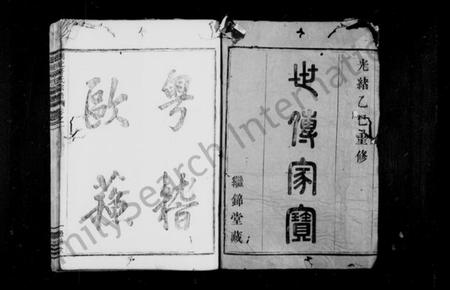 光緒乙巳重修
世傳家寶
繼錦堂藏
粵稽
歐蘇
FamilySearch International